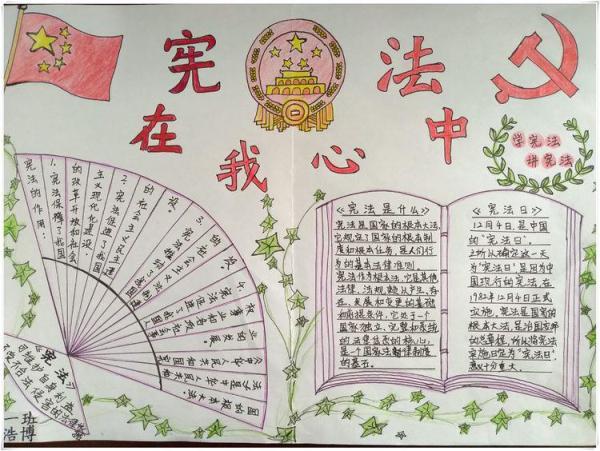 宪法
在我心中
学宪法
讲宪法
宪法的作用：
1.宪法保障了我国
的改革开放和社会
主义现代化建设；
2.宪法促进了我国
的社会主义民主建
设；
3.宪法推动了我国
的社会主义法制建
设；
4.宪法促进了我国人
权事业和各项社会事
业的发展。
《宪法是什么》
宪法是国家的根本大法，
它规定了国家的根本制
度和根本任务，是人们行
为的基本法律准则。
宪法作为根本法，它是其他
法律、法规赖以产生、存
在、发展和变更的基础
和前提条件，它处于一个
国家独立、完整和系统
的法律体系的核心，
是一个国家法律制度
的基石。
《宪法日》
12月4日，是中国
的"宪法日"。
之所以确定这一天
为"宪法日"，是因为中
国现行的宪法，在
1982年12月4日正式
实施，宪法是国家的
根本大法，是治国安邦
的总章程，所以将宪法
实施日定为"宪法日"，
意义十分重大。
《宪法》
一班
浩博